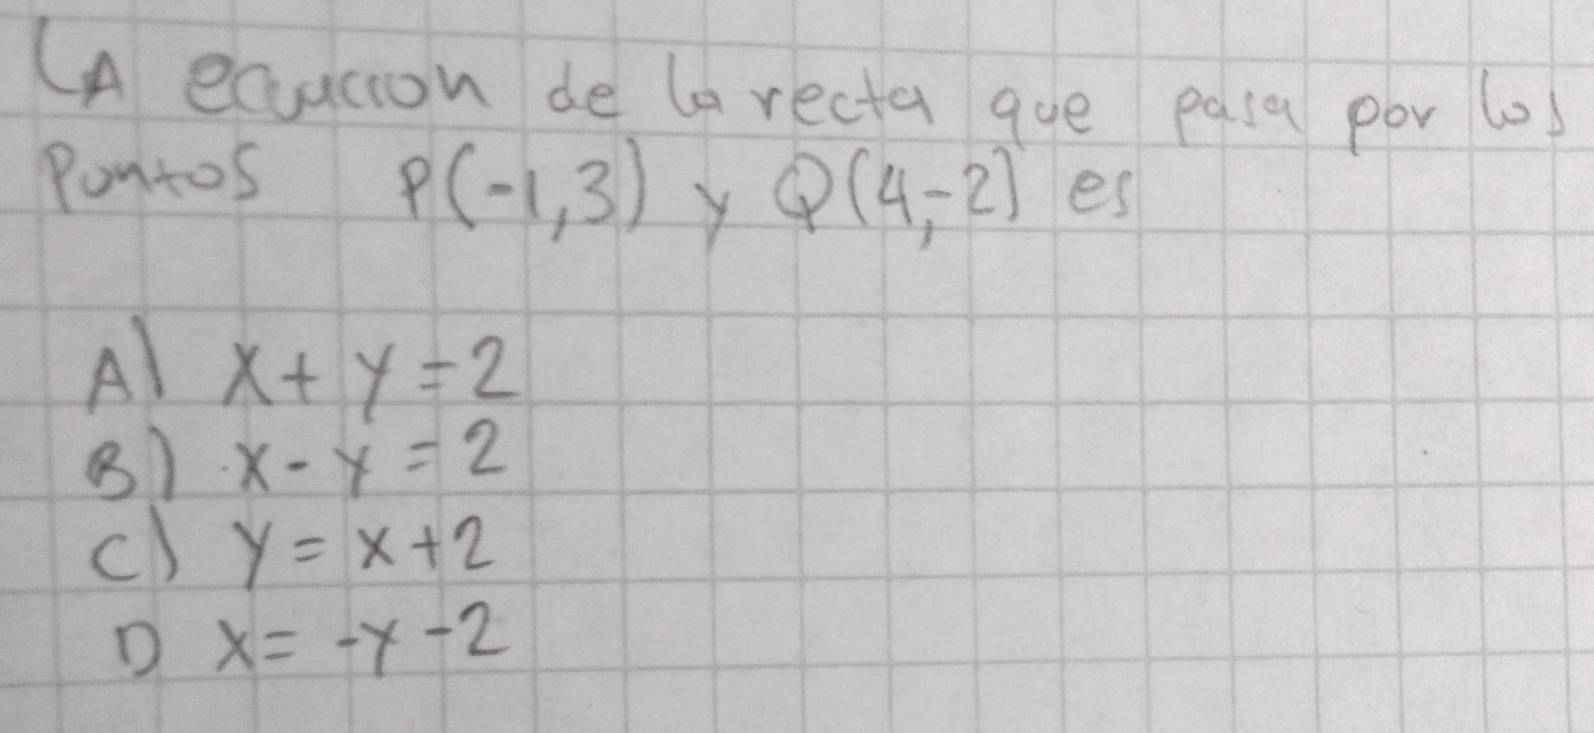 LA ecuacion de la recta que pasa por los
Puntos P(-1,3) y Q(4,-2) es
A) x + y = 2
B) x - y = 2
C) y = x + 2
D x = -y - 2